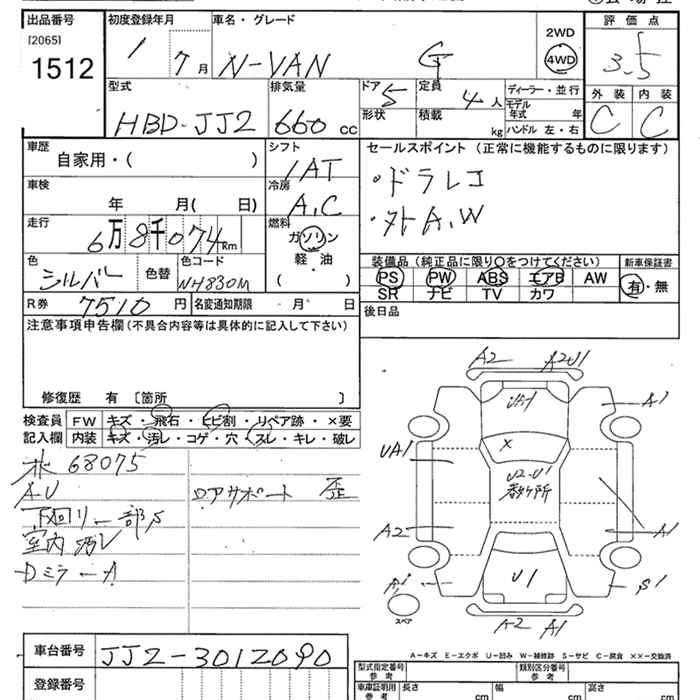 出品番号
[2065]
1512
初度登録年月
1 7月
車名・グレード
N-VAN G
2WD
4WD
評価点
3.5
外装 内装
C C
型式
HBD-JJ2
排気量
660 cc
ドア 5
形状
定員 4人
積載 kg
ディーラー・並行
モデル年式 年
ハンドル 左・右
車歴
自家用・( )
シフト
IAT
セールスポイント (正常に機能するものに限ります)
・ドラレコ
・外A.W
車検
年 月( 日)
冷房
A.C
走行
6万8千074Km
燃料
ガソリン
軽・油
( )
装備品(純正品に限り〇をつけてください)
新車保証書
PS PW ABS エアB AW
SR ナビ TV カワ
有・無
色
シルバー
色替
色コード
NH830M
R券 7510円
名変通知期限 ・月 日
後日品
注意事項申告欄(不具合内容等は具体的に記入して下さい)
修復歴 有 〔箇所 〕
検査員
記入欄
FW キズ・飛石・ヒビ割・リペア跡・×要
内装 キズ・汚レ・コゲ・穴・スレ・キレ・破レ
68075
A-U
下回リ一部S
室内汚レ
DミラーA
コアサポート 歪
A2 A2U1
A1
UA1
X
U2-U1
A2
A1
U1
S1
スペア
A2 A1
A-キズ E-エクボ U-凹 W-補修跡 S-サビ C-腐食 XX-交換済
車台番号
JJ2-3012090
登録番号
型式指定番号
参考
類別区分番号
車庫証明用
参考
長さ cm 幅 cm 高さ cm